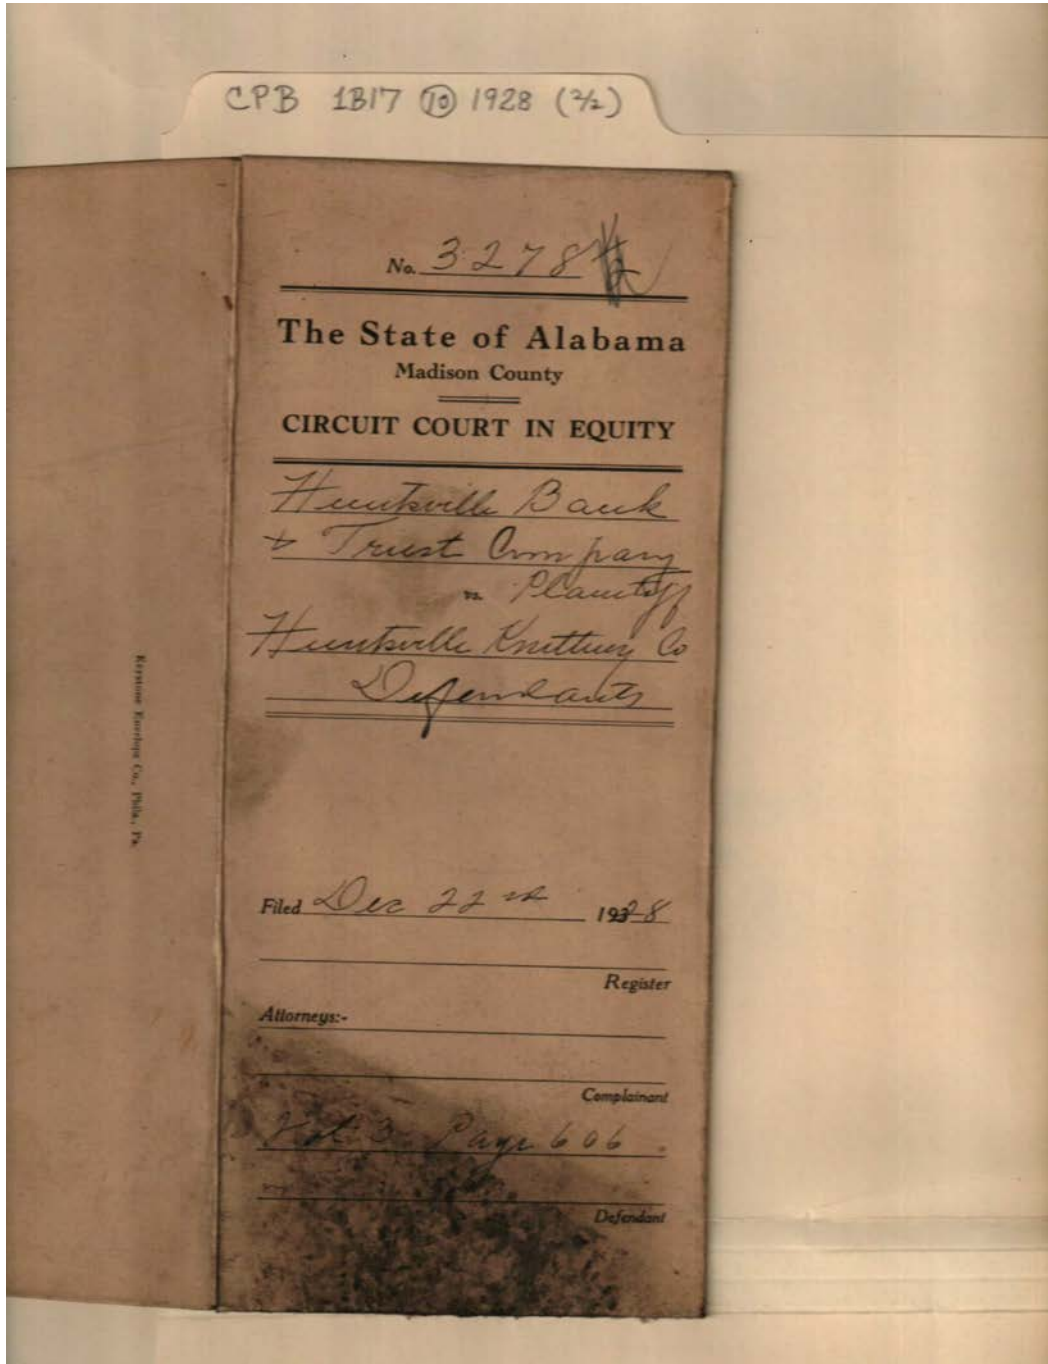 CPB 1B17 (10) 1928 (2/2)
No. 3278 1/2
The State of Alabama
Madison County
CIRCUIT COURT IN EQUITY
Huntsville Bank
& Trust Company
vs. Plaintiff
Huntsville Knitting Co
Defendants
Keystone Envelope Co., Phila., Pa.
Filed Dec 22nd 1928
Register
Attorneys:-
Complainant
Vol 3 Page 606
Defendant